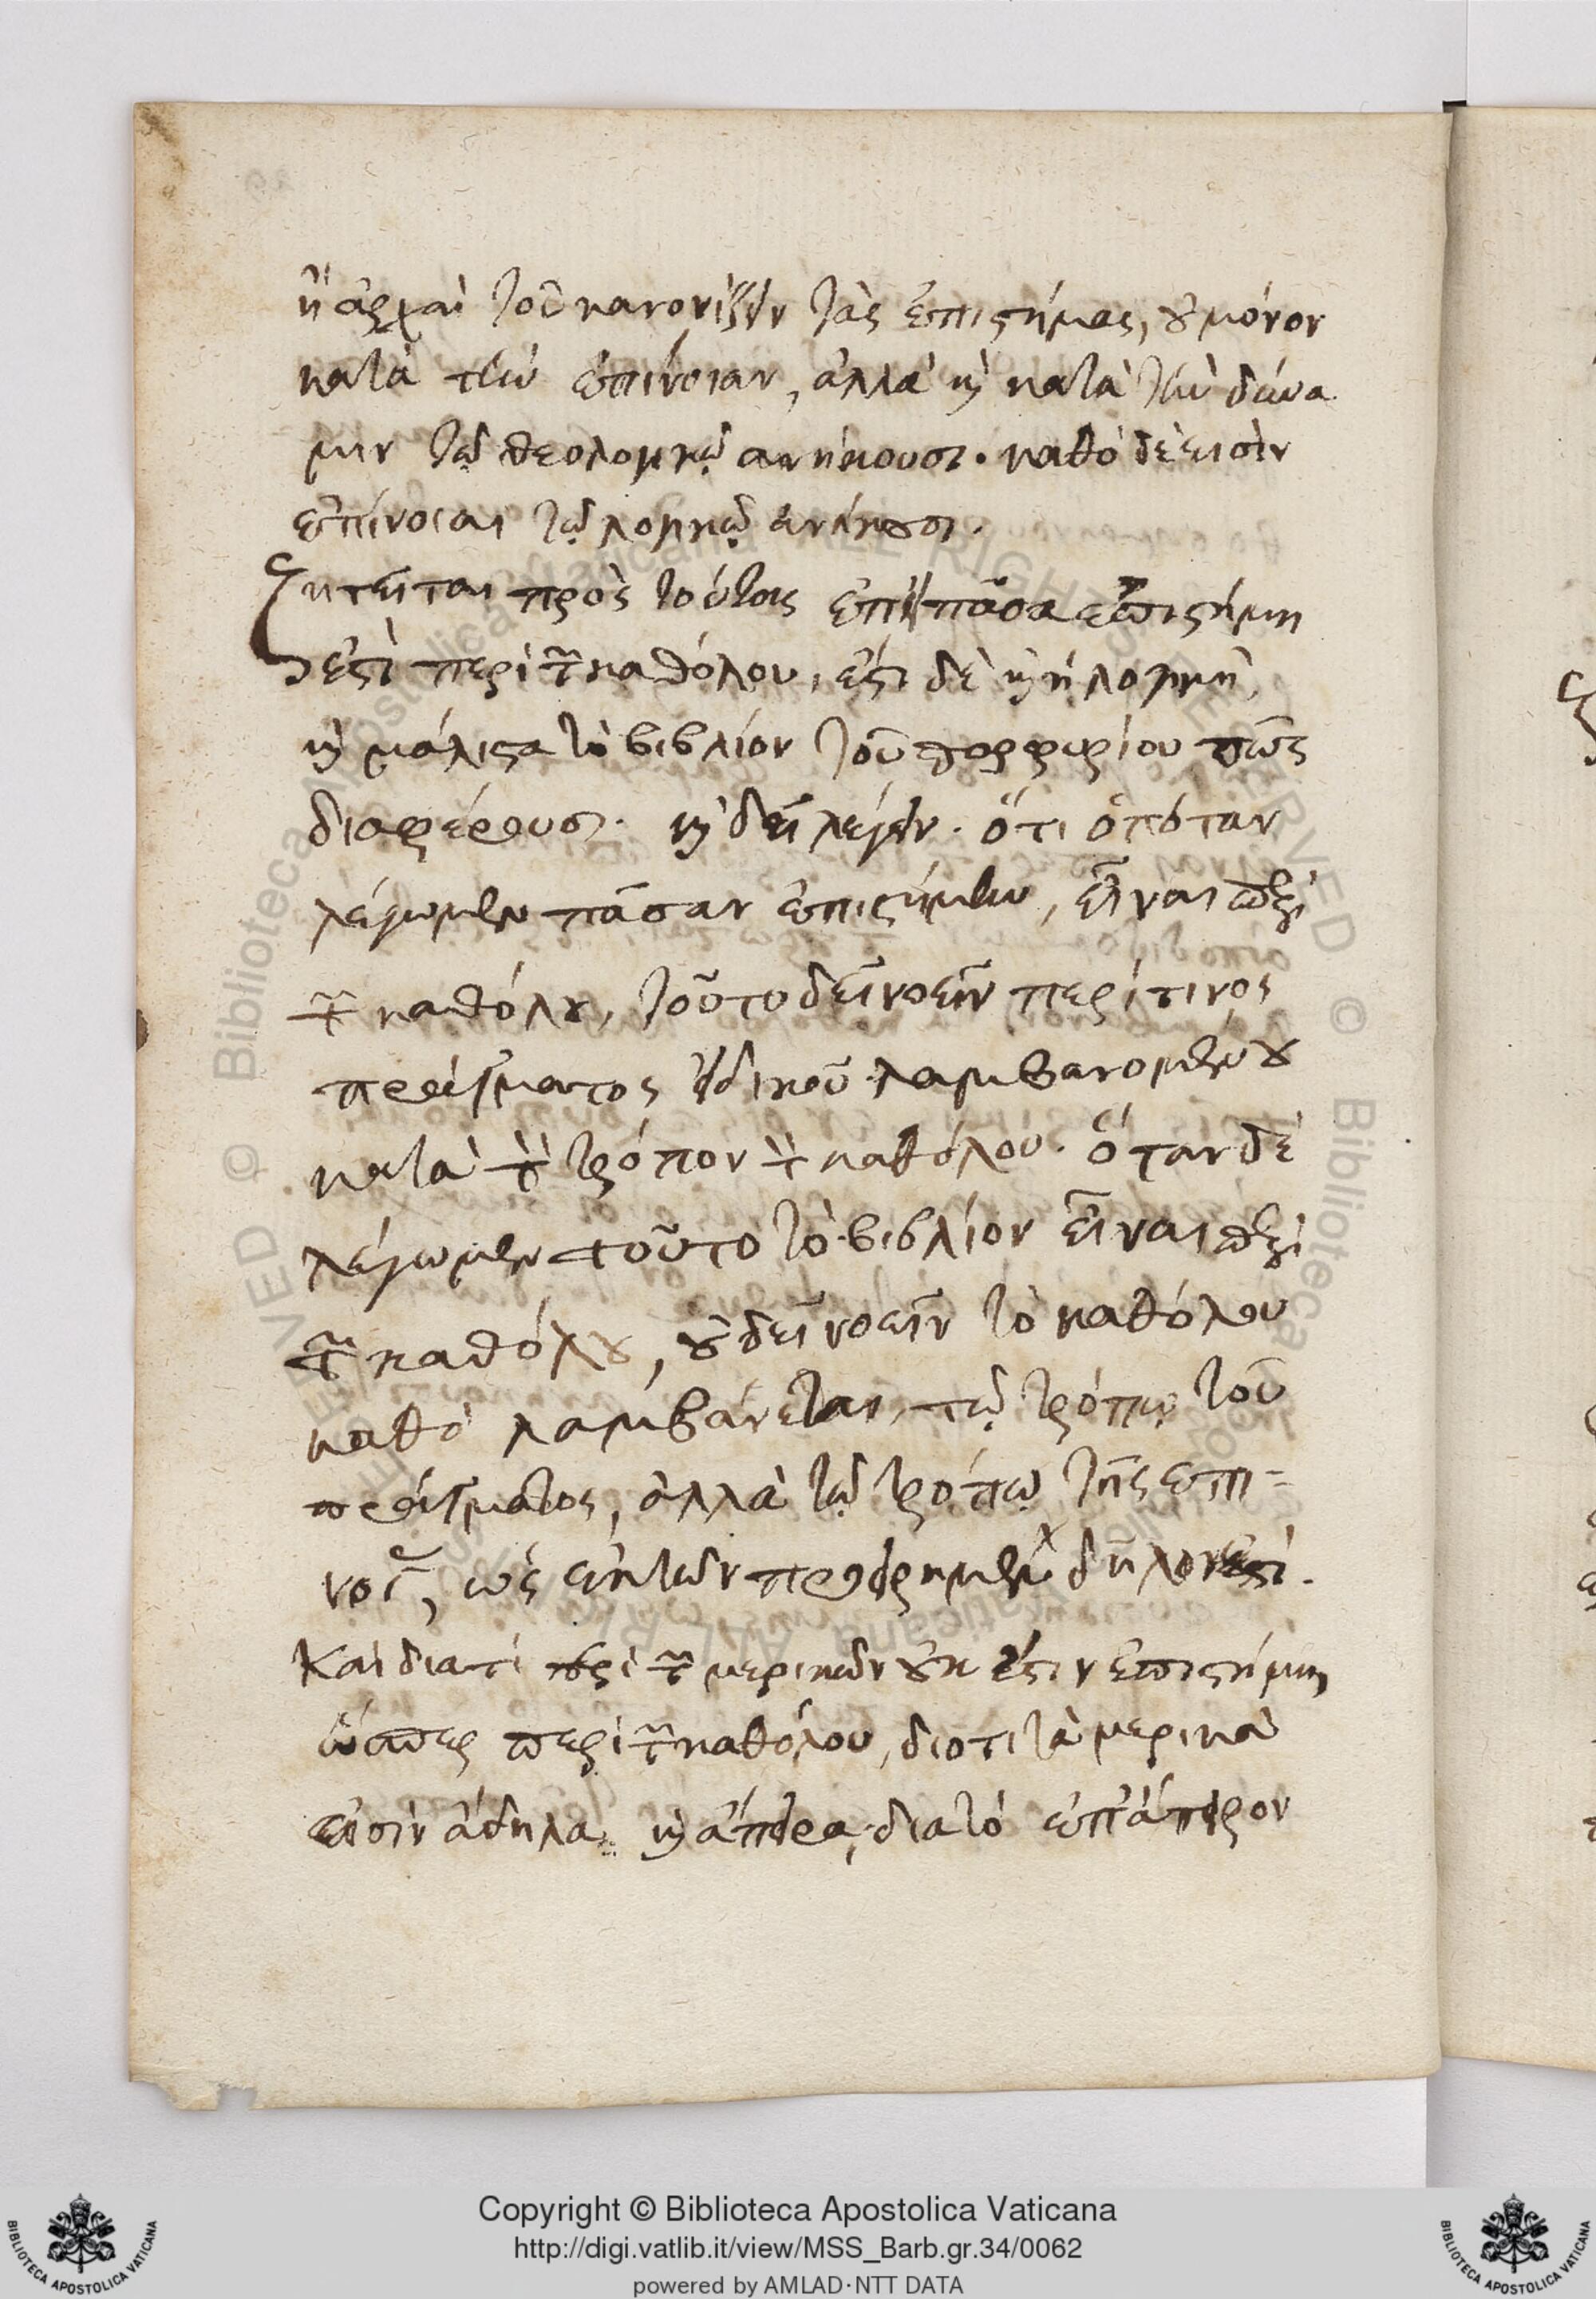 ἢ ἀρχαὶ τοῦ κανονίζειν τὰς ἐπιστήμας, οὐ μόνον
κατὰ τὴν ἐπίνοιαν, ἀλλὰ καὶ κατὰ τὴν δύνα
μιν τῷ θεολογικῷ ἀνήκουσι· καθὸ δὲ εισὶν
ἐπίνοιαι τῷ λογικῷ ἀνήκουσι.
ζητεῖται πρὸς τούτοις ἐπεὶ πᾶσα ἐπιστήμη
ἐστὶ περὶ τῶν καθόλου, ἔστι δὲ καὶ ἡ λογικὴ,
καὶ μάλιστα τὸ βιβλίον τοῦ πορφυρίου πῶς
διαφέρουσι· καὶ δεῖ λέγειν· ὅτι ὁπόταν
λέγωμεν πᾶσαν ἐπιστήμην, εἶναι περὶ
τῶν καθόλου, τοῦτο δεῖ νοεῖν περί τινος
πράγματος εἰδικοῦ λαμβανομένου
κατὰ τὸν τρόπον τοῦ καθόλου· ὅταν δὲ
λέγωμεν τοῦτο τὸ βιβλίον εἶναι περὶ
τῶν καθόλου, οὐ δεῖ νοεῖν τὸ καθόλου
καθὸ λαμβάνεται, τῷ τρόπῳ τοῦ
πράγματος, ἀλλὰ τῷ τρόπῳ τῆς επι-
νοίας, ὡς ἐκ τῶν προειρημένων δῆλον ἐστί.
Καὶ διατί περὶ τῶν μερικῶν οὐκ ἔστιν ἐπιστήμη
ὥσπερ περὶ τῶν καθόλου, διοτι τὰ μερικὰ
εἰσὶν ἄδηλα καὶ ἄπειρα, διὰ τὸ ἐπ' ἄπειρον
Copyright © Biblioteca Apostolica Vaticana
http://digi.vatlib.it/view/MSS_Barb.gr.34/0062
powered by AMLAD·NTT DATA
BIBLIOTECA APOSTOLICA VATICANA
BIBLIOTECA APOSTOLICA VATICANA